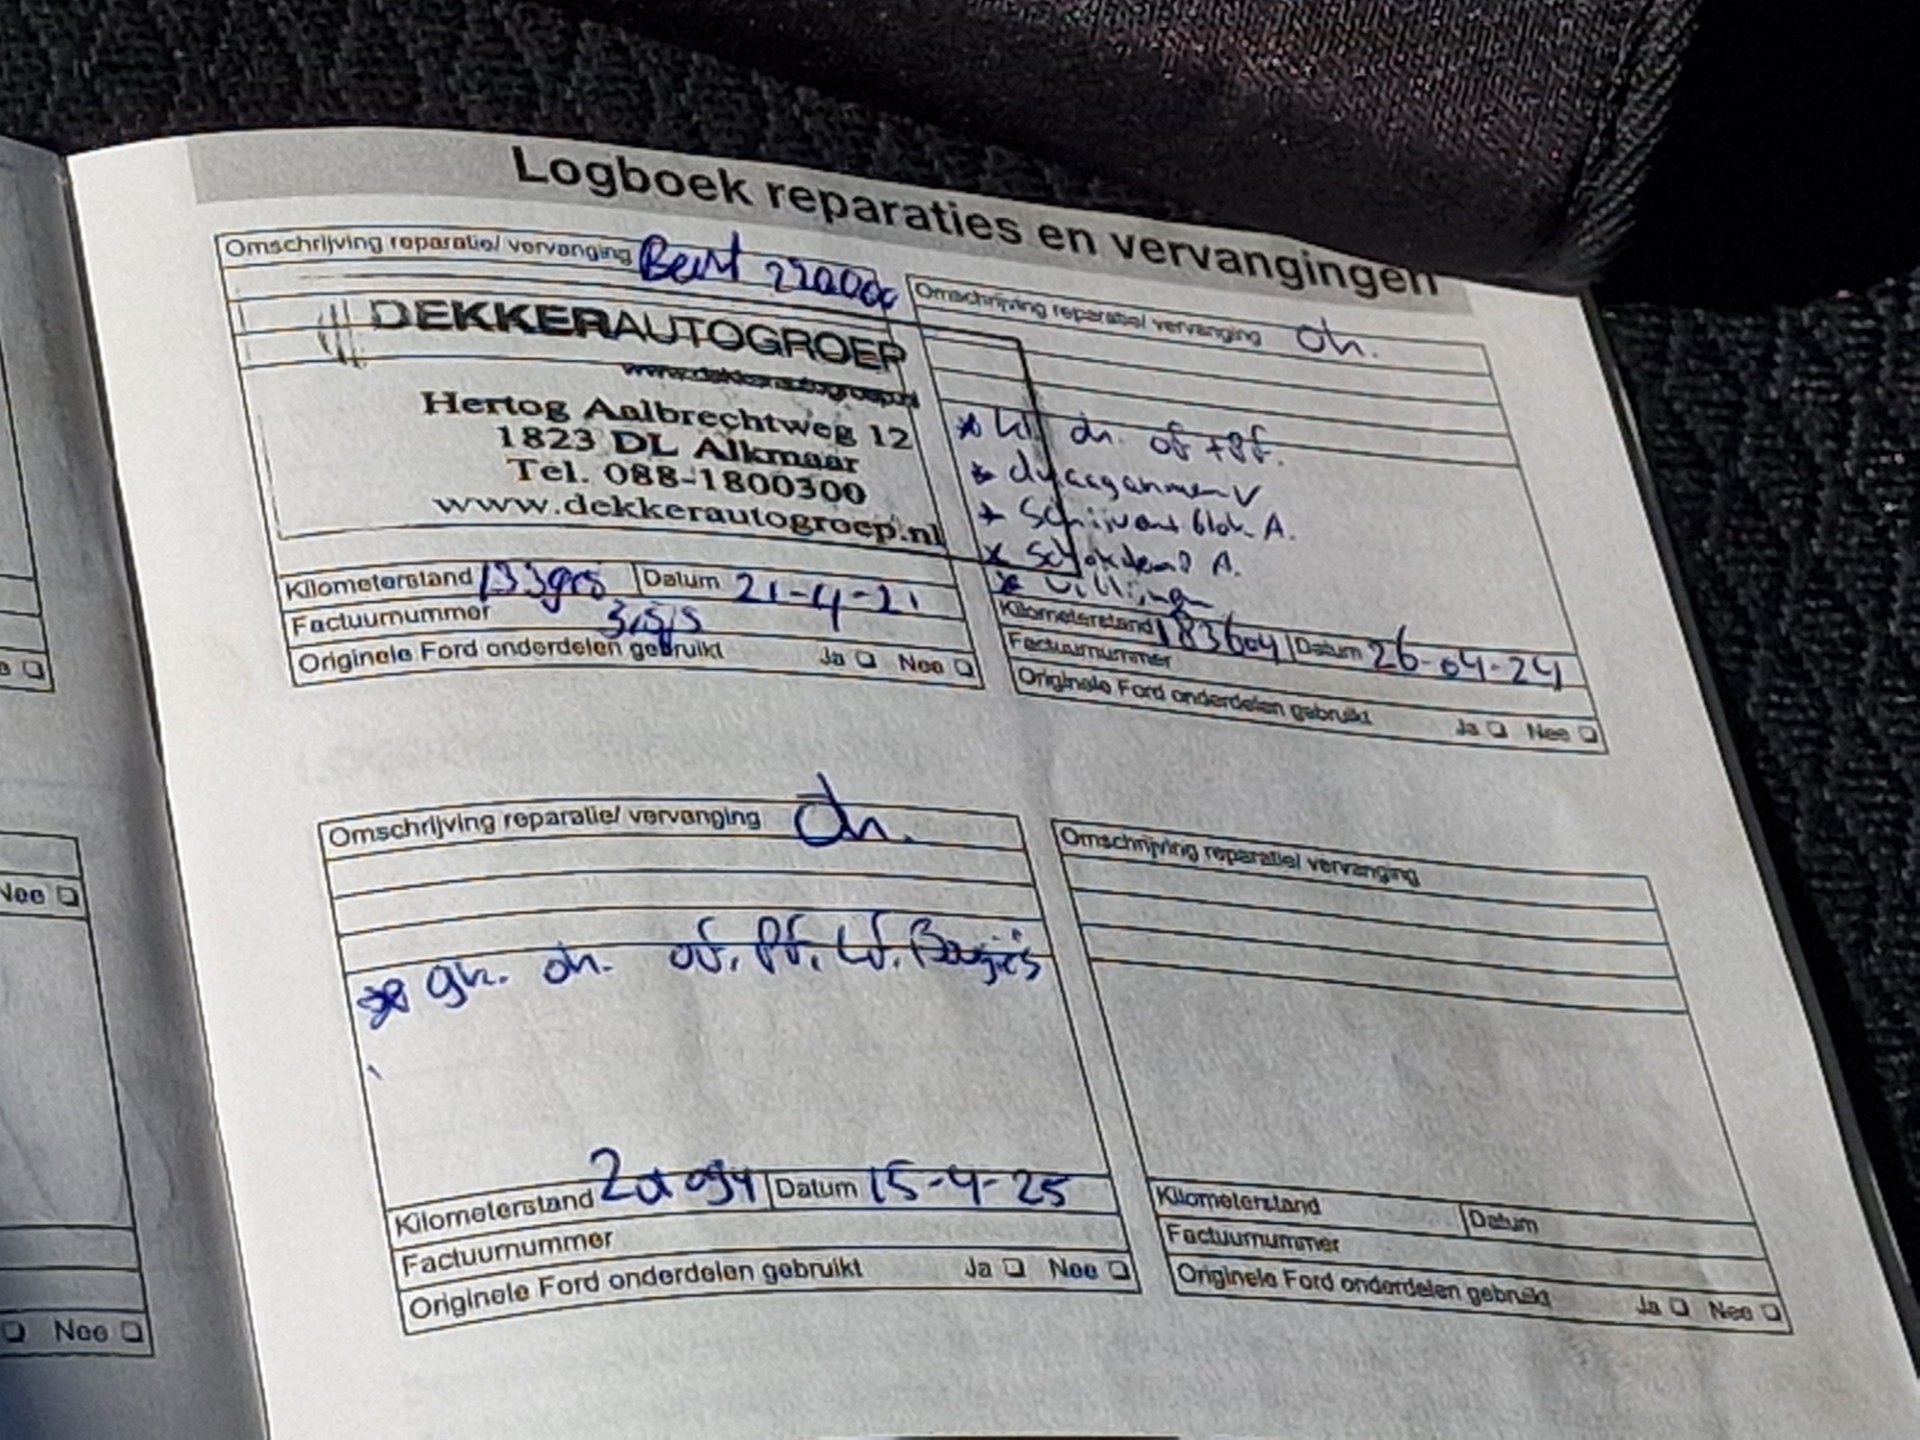 Logboek reparaties en vervangingen
Omschrijving reparatie/ vervanging
DEKKERAUTOGROEP
www.dekkerautogroep.nl
Hertog Aalbrechtweg 12
1823 DL Alkmaar
Tel. 088-1800300
www.dekkerautogroep.nl
Kilometerstand Datum 21-4-21
Factuurnummer
Originele Ford onderdelen gebruikt Ja Nee
Omschrijving reparatie/ vervanging oh.
* kl. oh. of + pf.
* draagarmen V
* Schijven blok A.
* Schokdemp A.
Kilometerstand 183604 Datum 26-04-24
Factuurnummer
Originele Ford onderdelen gebruikt Ja Nee
Omschrijving reparatie/ vervanging oh.
* gr. oh. of. pf. lf. Bougies
Kilometerstand Datum 15-4-25
Factuurnummer
Originele Ford onderdelen gebruikt Ja Nee
Omschrijving reparatie/ vervanging
Kilometerstand Datum
Factuurnummer
Originele Ford onderdelen gebruikt Ja Nee
Nee
Nee